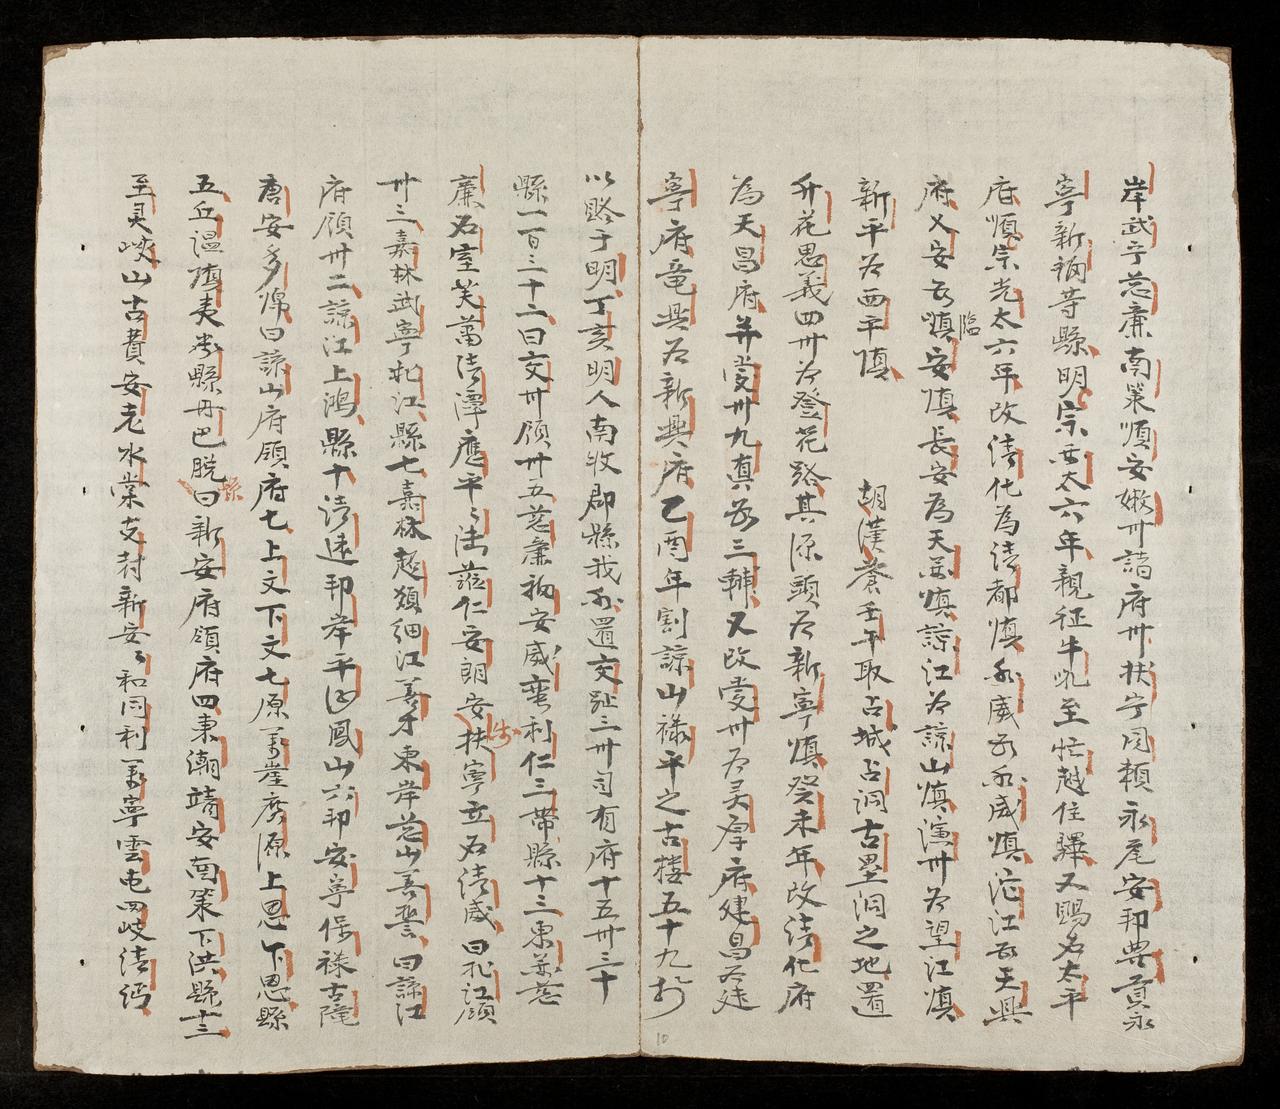 岸武宁慈廉南策順安嫩卅諸府卅扶宁同賴永尾安邦典貢永
寧新福等縣明宗至太六年親征牛吼至忙越住驛又賜名太平
府順宗光太六年改清化為清都慎為威為威慎沱江為天興
府乂安為臨慎安慎長安為天慎諒江為諒山慎演卅為望江慎
新平為西平慎　胡漢蒼壬午取占城占洞古壘洞之地置
升花思義四卅為登花路其源頭為新寧慎癸未年改清化府
為天昌府并愛卅九真為三輔又改愛卅為灵厚府建昌為建
寧府竜興為新興府乙酉年割諒山祿平之古樓五十九村
以賂于明丁亥明人南牧郡縣我為置交趾三卅司有府十五卅三十
縣一百三十二曰交卅領卅五慈廉福安威蛮利仁三帶縣十三東慈
廉石室芙蕾清潭應平平陸茲仁安朗安扶寧立石清威曰北江領
卅三嘉林武寧北江縣七嘉林超類細江善才東岸慈山善誓曰諒江
府領卅二諒江上鴻縣十清遠那岸平鳳山六那安寧保祿古隴
唐安多錦曰諒山府領府七上文下文七源萬崖廣源上思下思縣
五丘溫鎮夷縣丹巴脫曰新安府領府四東潮靖安南策下洪縣十三
至灵峽山古費安老水棠支封新安安和同利萬寧雲屯四岐清沔